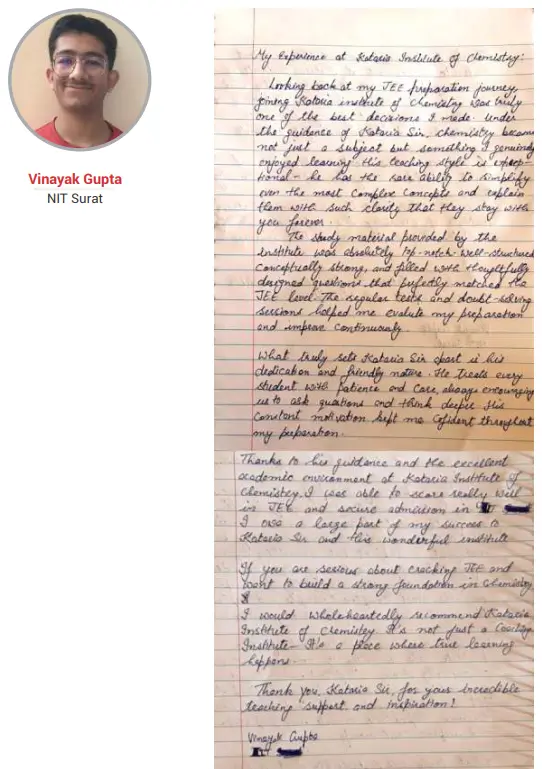 Vinayak Gupta
NIT Surat
My Experience at Kataria Institute of Chemistry:
Looking back at my JEE preparation journey,
joining Kataria institute of Chemistry was truly
one of the best decisions I made. Under
the guidance of Kataria Sir, chemistry became
not just a subject but something I genuinely
enjoyed learning. His teaching style is excep-
tional - he has the rare ability to simplify
even the most complex concepts and explain
them with such clarity that they stay with
you forever.
The study material provided by the
institute was absolutely top-notch. Well-structured
conceptually strong, and filled with thoughtfully
designed questions that perfectly matched the
JEE level. The regular tests and doubt-solving
sessions helped me evaluate my preparation
and improve continuously.
What truly sets Kataria Sir apart is his
dedication and friendly nature. He treats every
student with patience and care, always encouraging
us to ask questions and think deeper. His
constant motivation kept me cofident throughout
my preparation.
Thanks to his guidance and the excellent
academic environment at Kataria Institute of
Chemistry, I was able to score really well
in JEE and secure admission in
I owe a large part of my success to
Kataria Sir and this wonderful institute
If you are serious about cracking JEE and
want to build a strong foundation in Chemistry
I would wholeheartedly recommend Kataria
Institute of Chemistry. It's not just a Coaching
Institute- It's a place where true learning
happens.
Thank you, Kataria Sir, for your incredible
teaching support and inspiration!
Vinayak Gupta